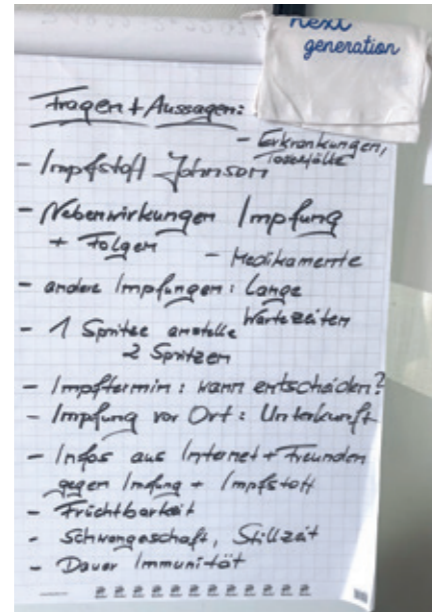 next
generation
Fragen + Aussagen:
- Erkrankungen,
Todesfälle
- Impfstoff Johnson
- Nebenwirkungen Impfung
+ Folgen
- Medikamente
- andere Impfungen: Lange
Wartezeiten
- 1 Spritze anstelle
2 Spritzen
- Impftermin: wann entscheiden?
- Impfung vor Ort: Unterkunft
- Infos aus Internet + Freunden
gegen Impfung + Impfstoff
- Fruchtbarkeit
- Schwangeschaft, Stillzeit
- Dauer Immunität